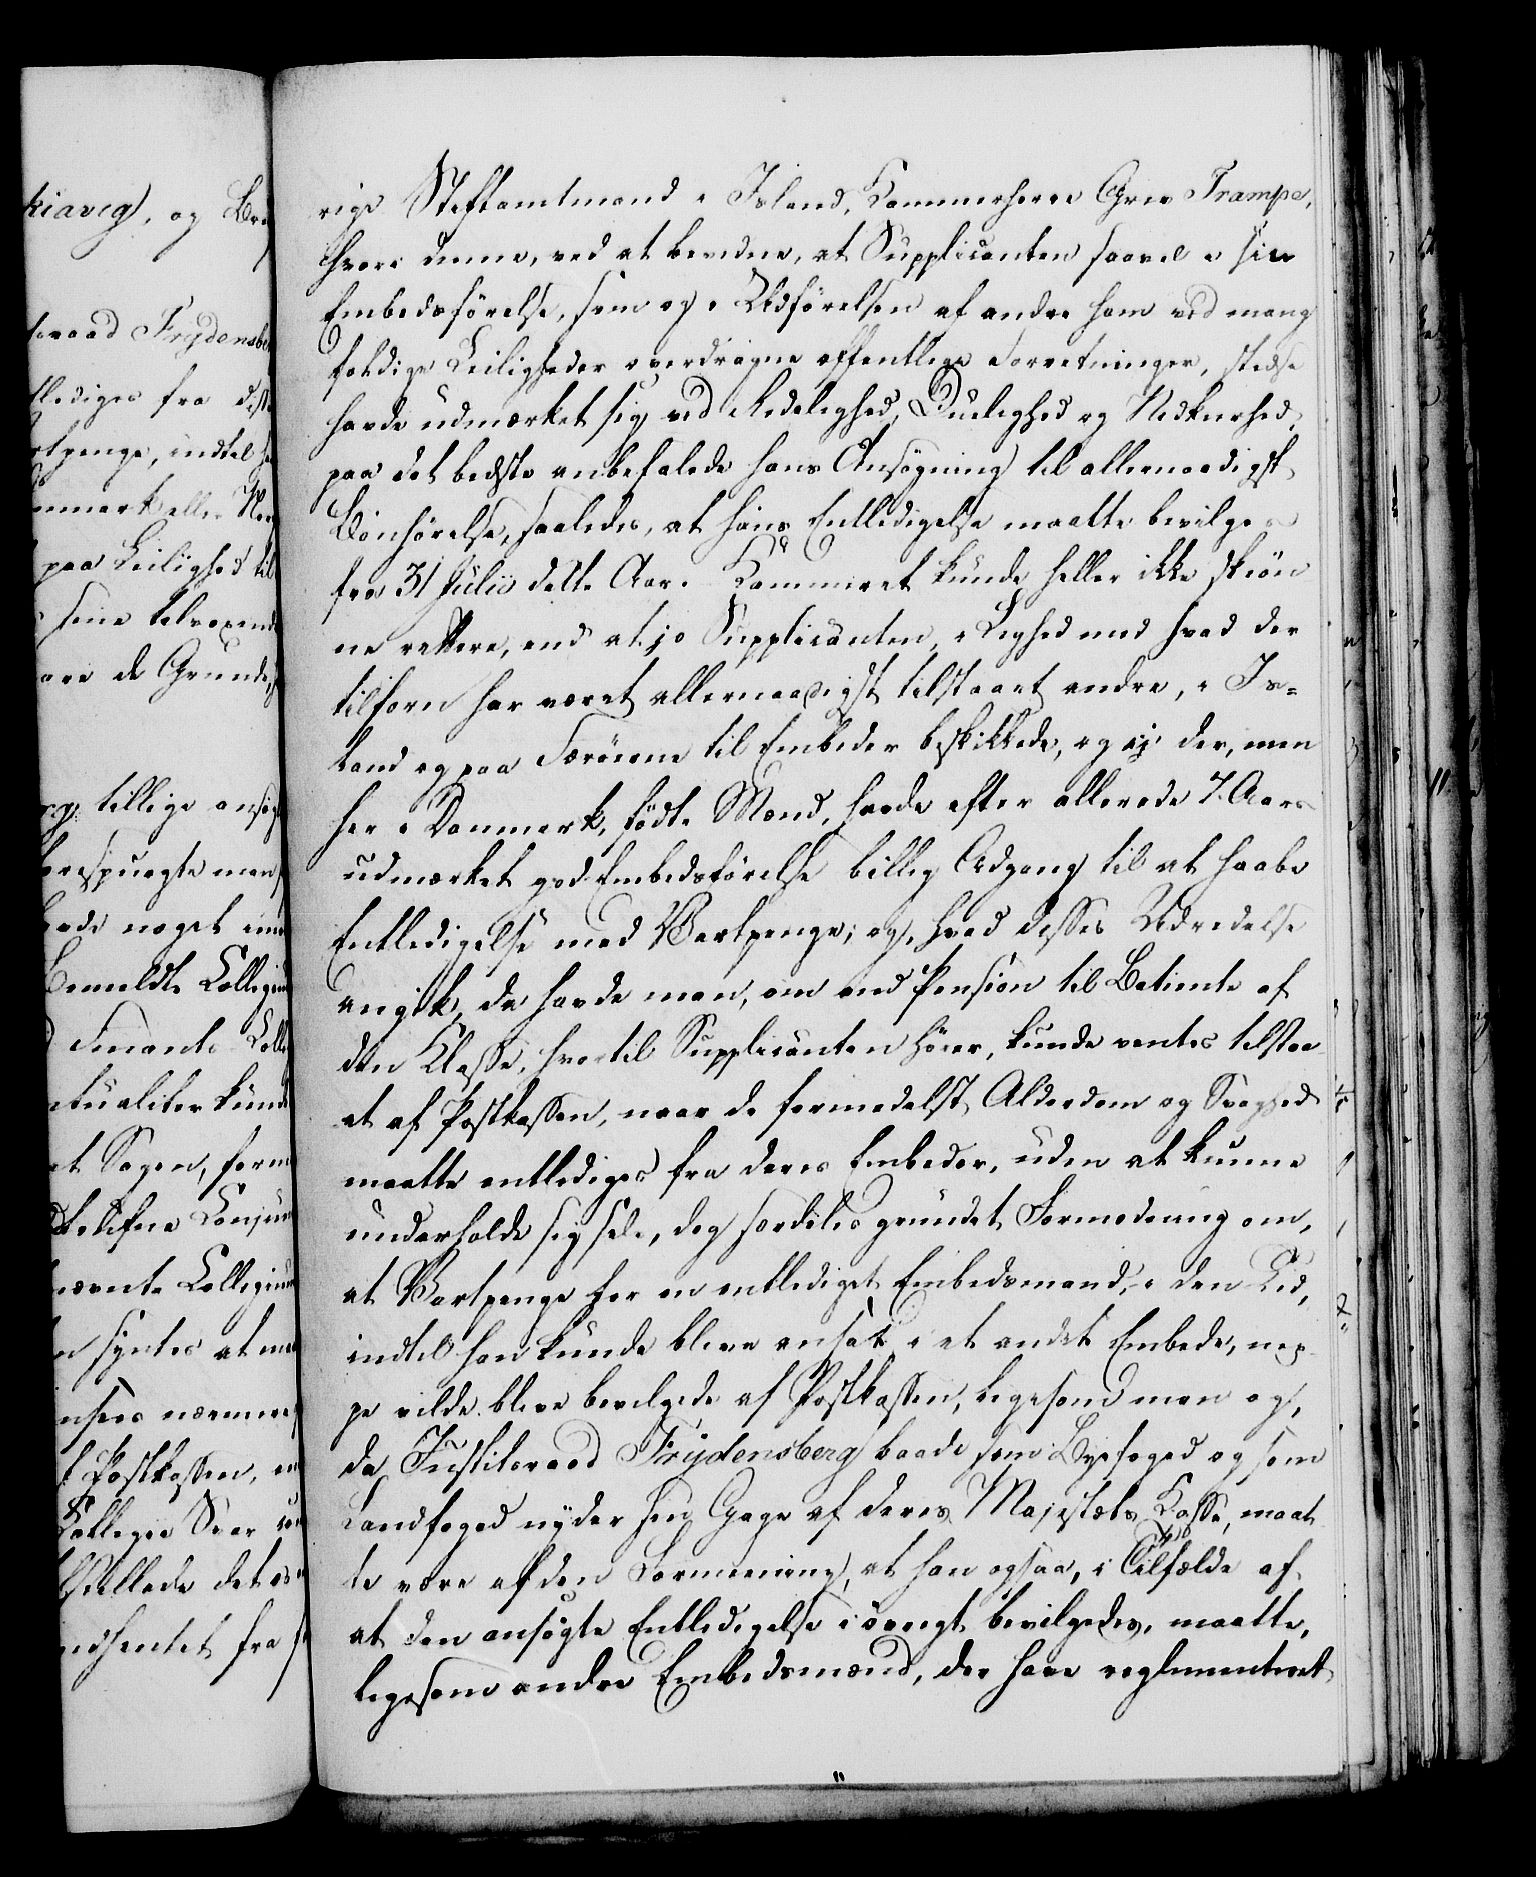 kiavig), og
raad Frydensbe
tlediges fra
rtpenge, indtil
nmark eller Nor
paa Leilighed til
sine tilvoxende
are de Grunde,
og tillige ansøg
forespurgte man
havde noget
Bemeldte Collegium
Finants Coll
kunde
at Sagen, form
nævnte Collegium
n syntes at
nærmere
t Postkassen, en
Collegii Svar
tillede det
indhentet fra
rige Stiftamtmand i Island, Kammerherre Grev Trampe,
hvori denne, ved at bevidne, at Supplicanten saavel i sin
Embedsførelse, som og i Udførelsen af andre ham ved mang
foldige Leiligheder overdragne offentlige Forretninger, stedse
havde udmærket sig ved Redelighed, Duelighed og Nidkierhed,
paa det bedste anbefalede hans Ansøgning til allernaadigst
Bønhørelse, saaledes, at hans Entledigelse maatte bevilges
fra 31 Julii dette Aar. Kammeret kunde heller ikke skiøn
ne rettere, end at jo Supplicanten, i Lighed med hvad der
tilforn har været allernaadigst tilstaaet andre, i Is=
land og paa Færøerne til Embeder beskikkede, og ej der, men
her i Danmark, fødte Mænd, havde efter allerede 7 Aars
udmærket god Embedsførelse billig Adgang til at haabe
Entledigelse med Vartpenge; og, hvad disses Udredelse
angik, da havde man, om end Pension til Betiente af
den Klasse, hvortil Supplicanten hører, kunde ventes tilstaa
et af Postkassen, naar de formedelst Alderdom og Svaghed
maatte entlediges fra deres Embeder, uden at kunne
underholde sig selv, dog særdeles grundet Formodning om,
at Vartpenge for en entlediget Embedsmand, i den Tid,
indtil han kunde blive ansat i et andet Embede, nep
pe vilde blive bevilgede af Postkassen, ligesom man og,
da Justitsraad Frydensberg baade som Byefoged og som
Landfoged nyder sin Gage af Deres Majestæts Kasse, maat
te være af den Formeening, at han ogsaa, i Tilfælde af
at den ansøgte Entledigelse iøvrigt bevilgedes, maatte,
ligesom andre Embedsmænd, der have reglementeret